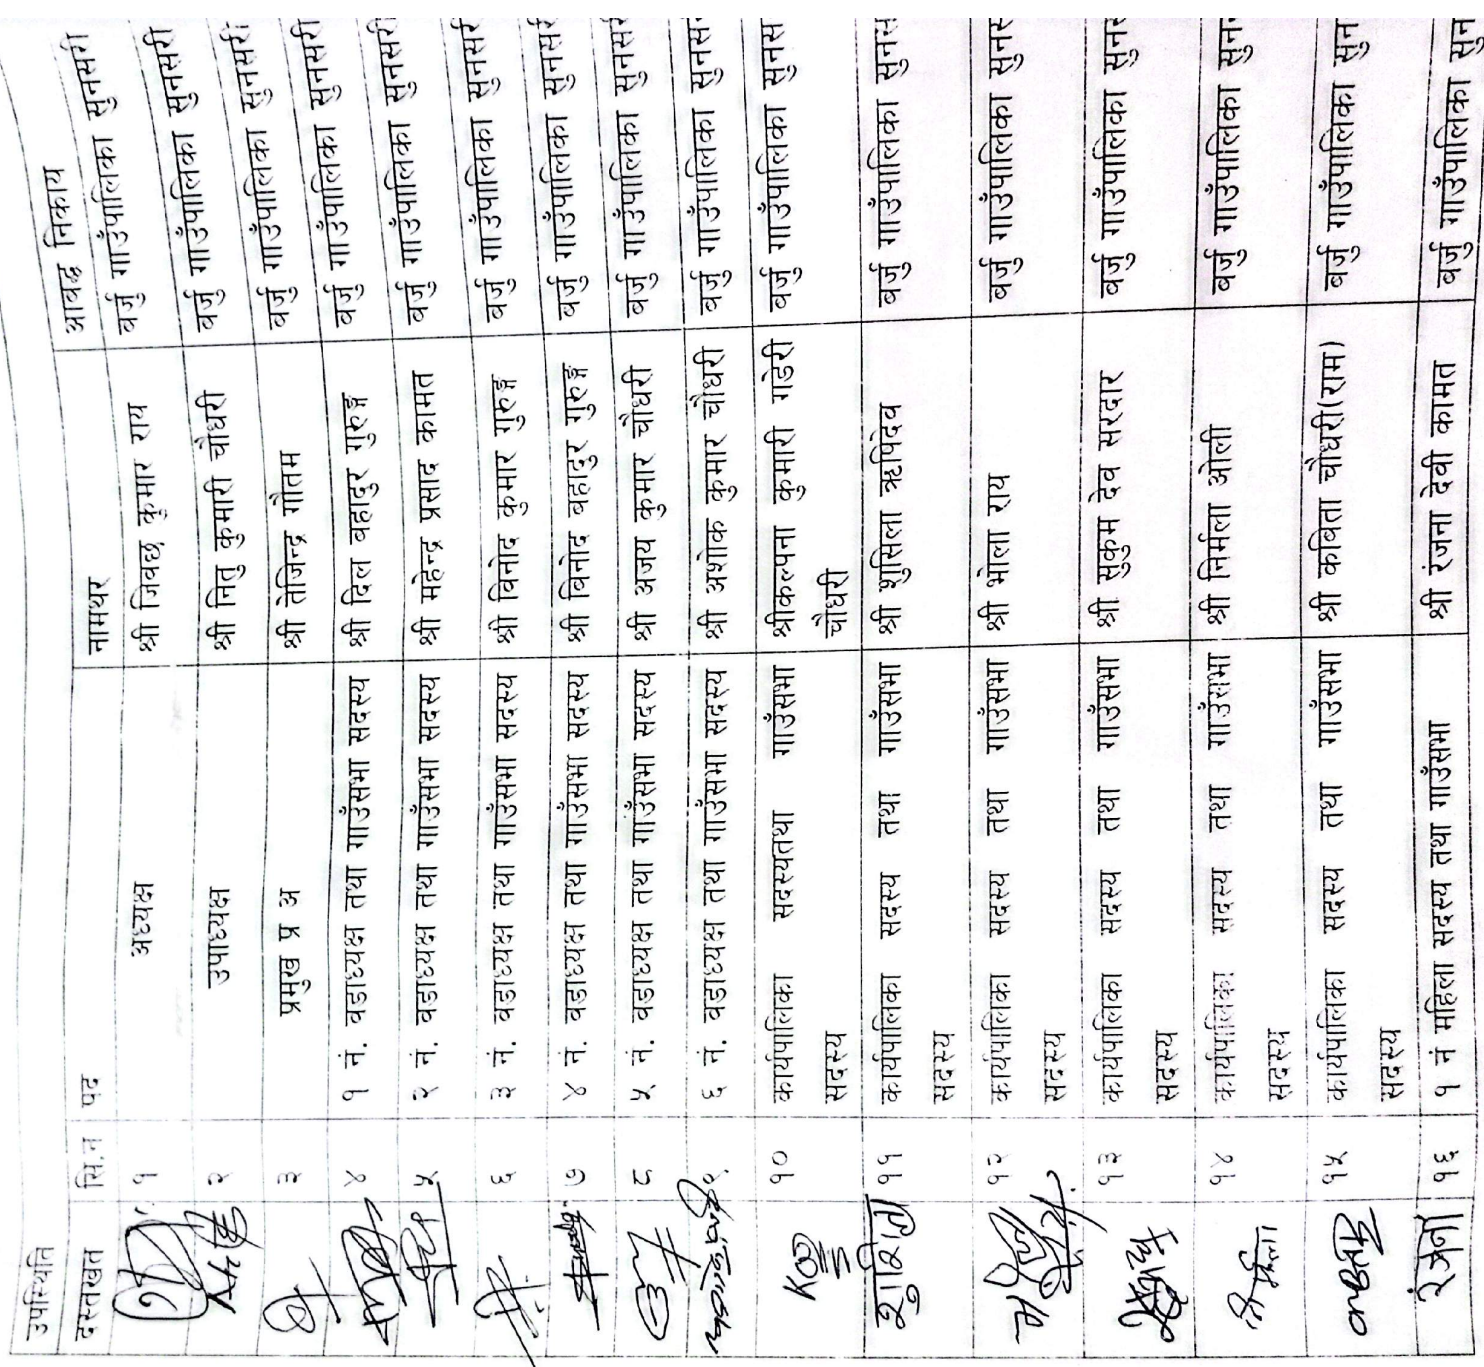 उपस्थिति
दस्तखत सि.न पद नामथर आवद्ध निकाय
१ अध्यक्ष श्री जिवछ कुमार राय बर्जु गाउँपालिका सुनसरी
२ उपाध्यक्ष श्री नितु कुमारी चौधरी बर्जु गाउँपालिका सुनसरी
३ प्रमुख प्र अ श्री तेजिन्द्र गौतम बर्जु गाउँपालिका सुनसरी
४ १ नं. वडाध्यक्ष तथा गाउँसभा सदस्य श्री दिल बहादुर गुरुङ्ग बर्जु गाउँपालिका सुनसरी
५ २ नं. वडाध्यक्ष तथा गाउँसभा सदस्य श्री महेन्द्र प्रसाद कामत बर्जु गाउँपालिका सुनसरी
६ ३ नं. वडाध्यक्ष तथा गाउँसभा सदस्य श्री बिनोद कुमार गुरुङ्ग बर्जु गाउँपालिका सुनसरी
७ ४ नं. वडाध्यक्ष तथा गाउँसभा सदस्य श्री बिनोद बहादुर गुरुङ्ग बर्जु गाउँपालिका सुनसरी
८ ५ नं. वडाध्यक्ष तथा गाउँसभा सदस्य श्री अजय कुमार चौधरी बर्जु गाउँपालिका सुनसरी
९ ६ नं. वडाध्यक्ष तथा गाउँसभा सदस्य श्री अशोक कुमार चौधरी बर्जु गाउँपालिका सुनसरी
१० कार्यपालिका सदस्यतथा गाउँसभा श्रीकल्पना कुमारी गडेरी बर्जु गाउँपालिका सुनस
सदस्य चौधरी
शुशिला ११ कार्यपालिका सदस्य तथा गाउँसभा श्री शुसिला ऋषिदेव बर्जु गाउँपालिका सुनस
सदस्य
१२ कार्यपालिका सदस्य तथा गाउँसभा श्री भोला राय बर्जु गाउँपालिका सुनस
सदस्य
१३ कार्यपालिका सदस्य तथा गाउँसभा श्री सुकुम देव सरदार बर्जु गाउँपालिका सुनस
सदस्य
निर्मला १४ कार्यपालिका सदस्य तथा गाउँसभा श्री निर्मला ओली बर्जु गाउँपालिका सुन
सदस्य
१५ कार्यपालिका सदस्य तथा गाउँसभा श्री कबिता चौधरी(राम) बर्जु गाउँपालिका सुन
सदस्य
रंजना १६ १ नं महिला सदस्य तथा गाउँसभा श्री रंजना देवी कामत बर्जु गाउँपालिका सुन